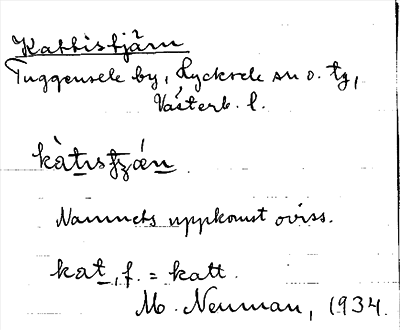 Kattistjärn
Tuggensele by, Lycksele sn o. tg,
Västerb. l.
kàt̲ısʈʒǽn̲
Namnets uppkomst oviss.
kat̲, f. = katt.
M. Neuman, 1934.